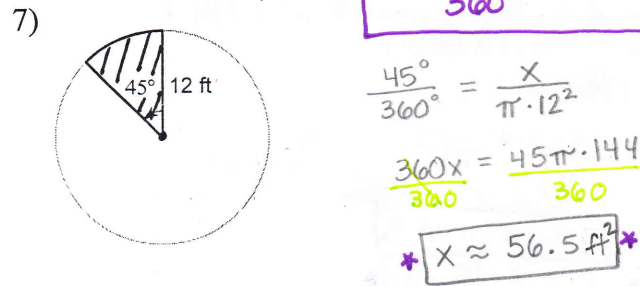 7)
45° 12 ft
360
45° / 360° = x / π · 12²
360x / 360 = 45π · 144 / 360
* x ≈ 56.5 ft² *